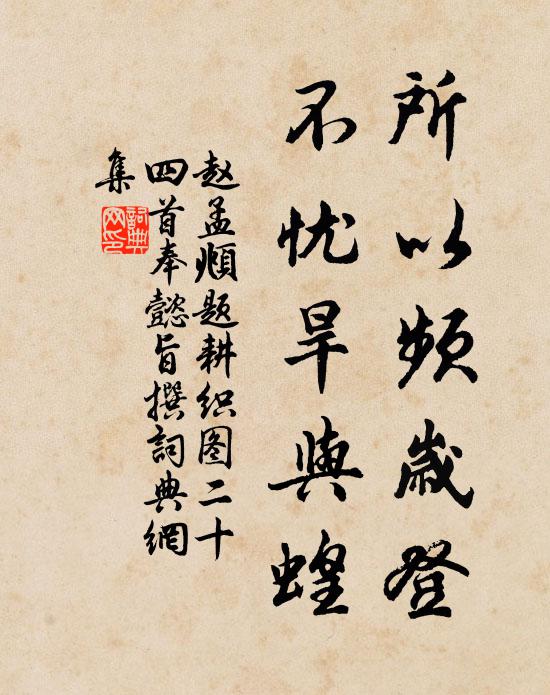 所以频岁登
不忧旱與蝗
赵孟頫题耕织图二十
四首奉懿旨撰詞典網
集
詞典网印